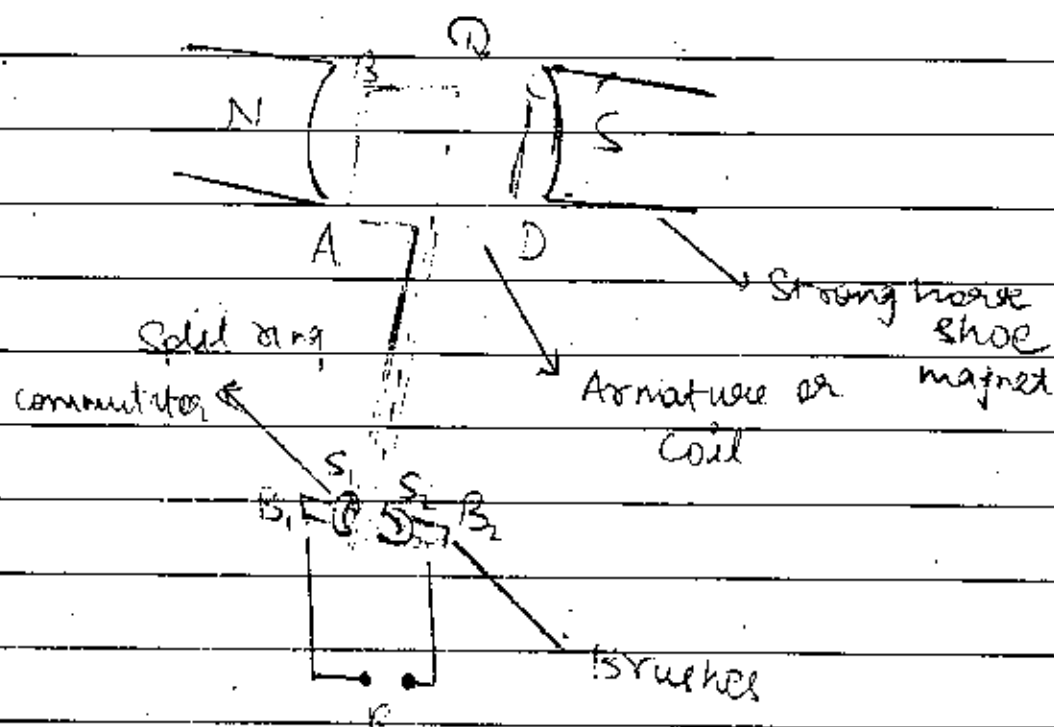 B
N
S
A
D
Strong horse
shoe
magnet
Split ring
commutator
Armature or
Coil
S1
S2
B1
B2
Brushes